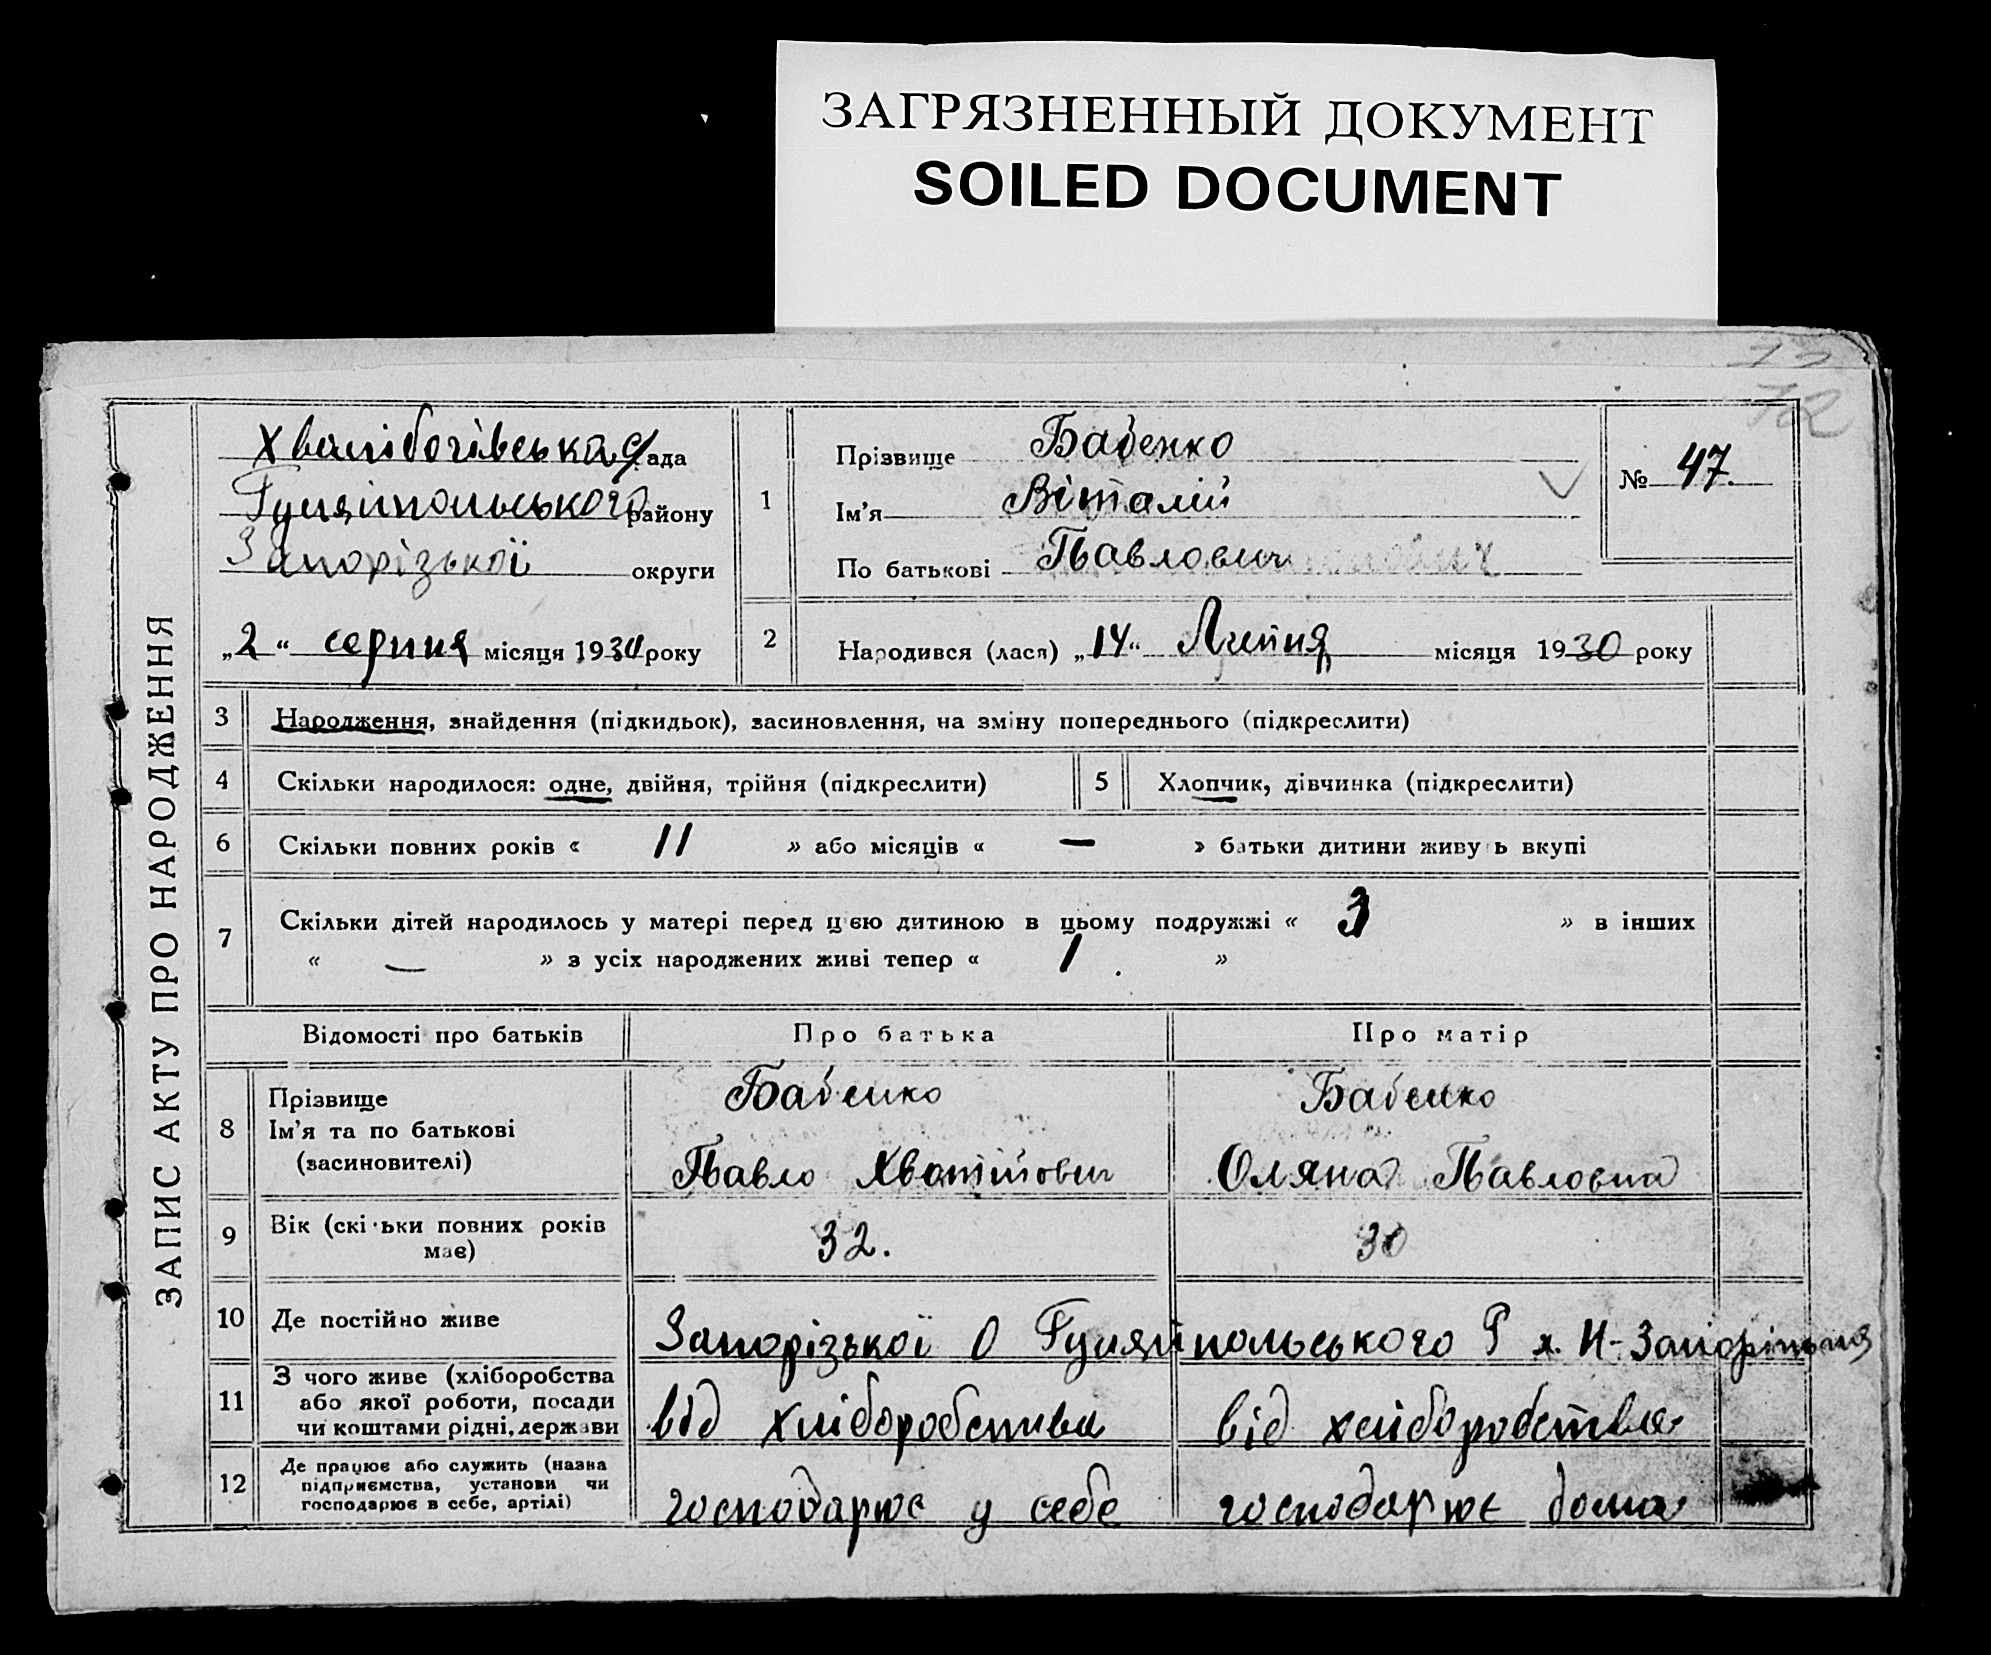 ЗАГРЯЗНЕННЫЙ ДОКУМЕНТ
SOILED DOCUMENT
72
ЗАПИС АКТУ ПРО НАРОДЖЕННЯ
Хвалібогівська рада
Гуляйпольського району
Запорізької округи
„2“ серпня місяця 1930 року
1
Прізвище Бабенко
Ім’я Віталій
По батькові Павлович
№ 47.
2 Народився (лася) „14“ Липня місяця 1930 року
3 Народження, знайдення (підкидьок), засиновлення, на зміну попереднього (підкреслити)
4 Скільки народилося: одне, двійня, трійня (підкреслити) 5 Хлопчик, дівчинка (підкреслити)
6 Скільки повних років « 11 » або місяців « — » батьки дитини живуть вкупі
7 Скільки дітей народилось у матері перед цією дитиною в цьому подружжі « 3 » в інших
« — » з усіх народжених живі тепер « 1 . »
Відомості про батьків Про батька Про матір
8 Прізвище Бабенко Бабенко
Ім’я та по батькові
(засиновителі) Павло Оляна Павловна
9 Вік (скільки повних років має) 32. 30
10 Де постійно живе Запорізької О Гуляйпольського Р х. Н-Запоріжжя
11 З чого живе (хліборобства
або якої роботи, посади
чи коштами рідні, держави від хліборобства від хліборобства
12 Де працює або служить (назва
підприємства, установи чи
господарює в себе, артілі) господарює у себе господарює дома